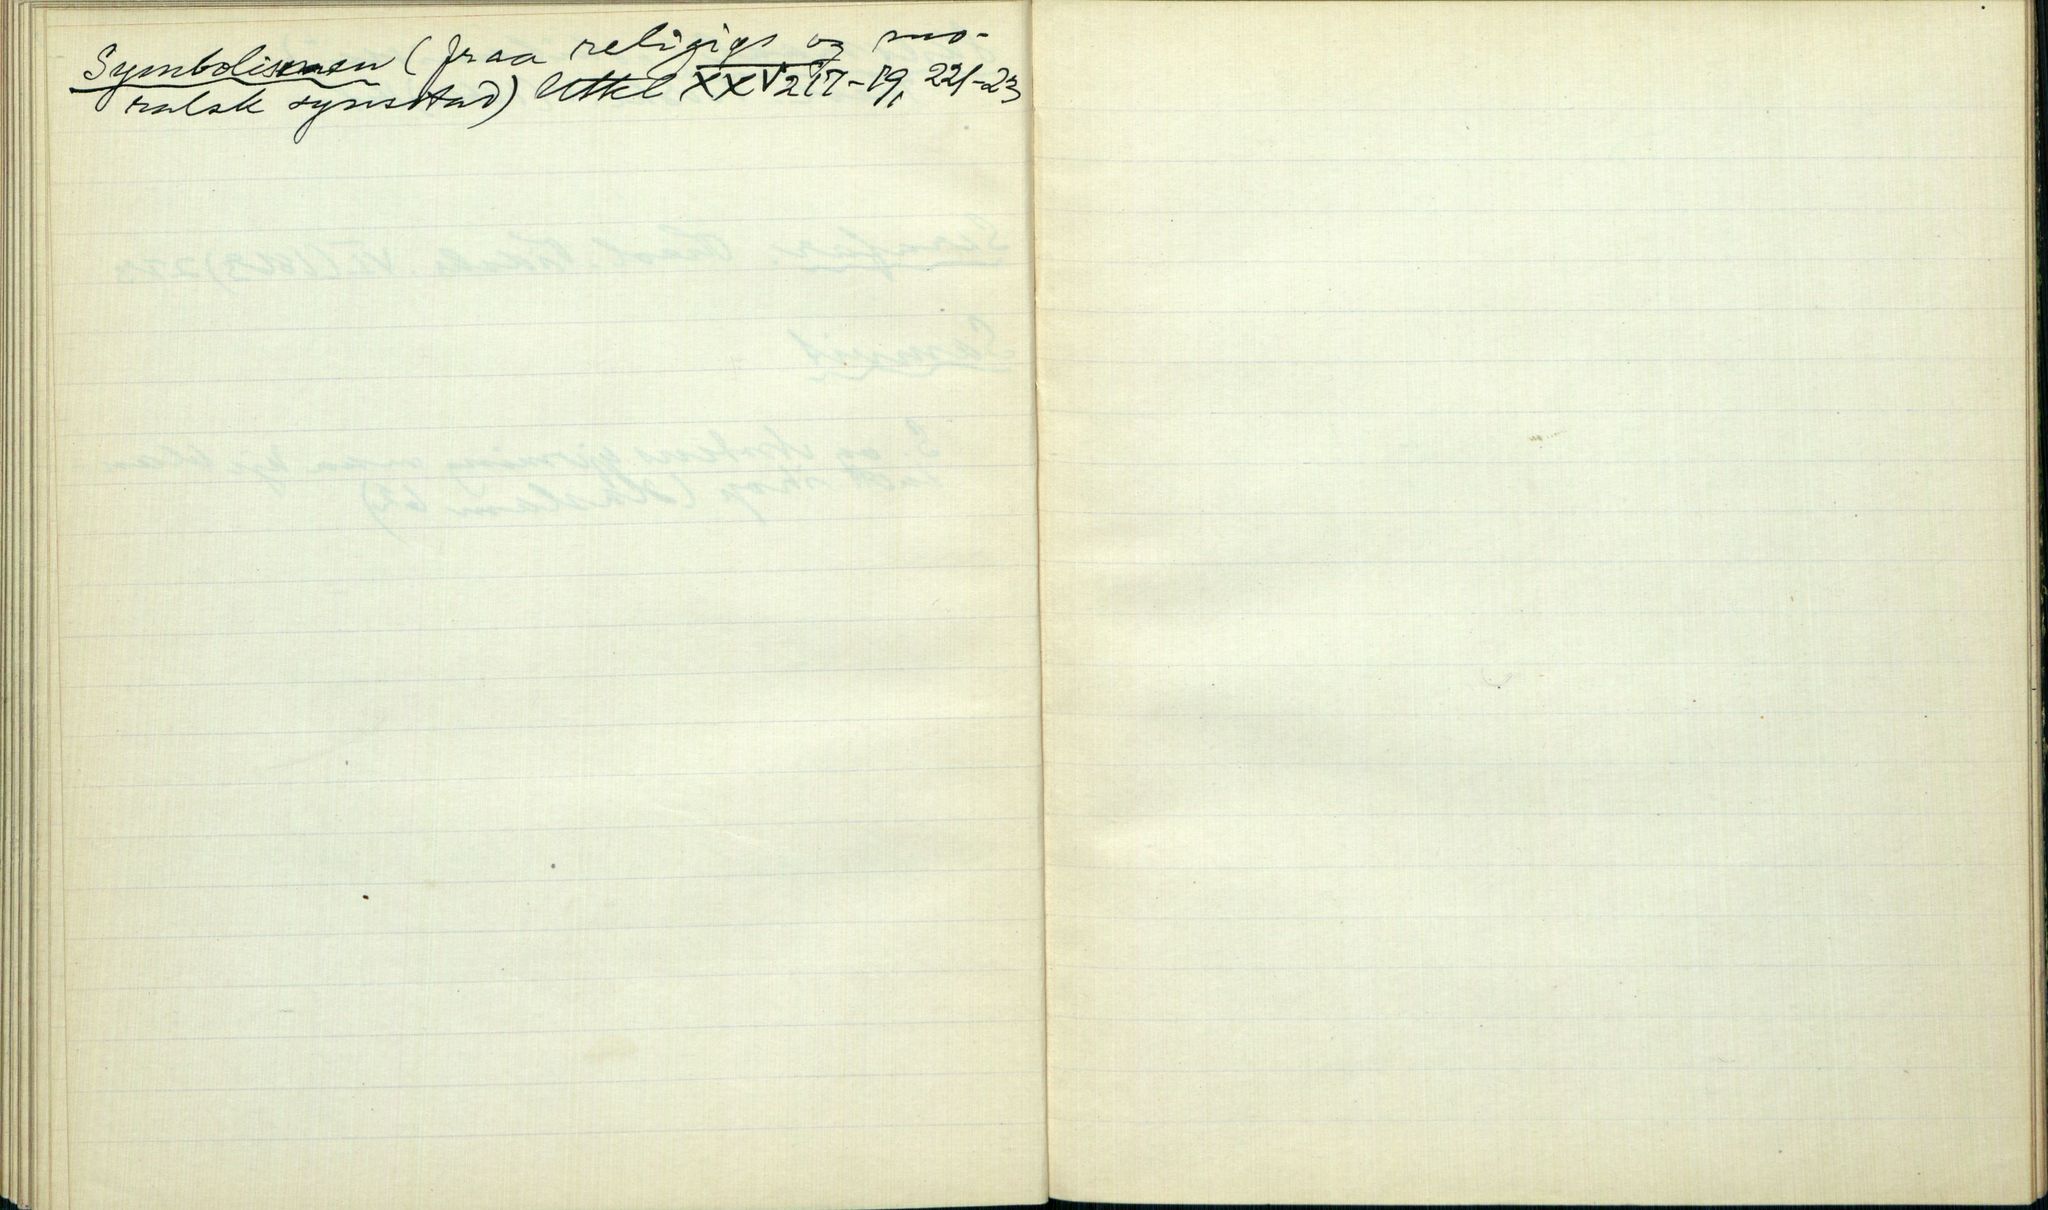 Symbolismen (fraa religiøs og mo-
ralsk synstad) Uttkl XXV 217-19, 221-23